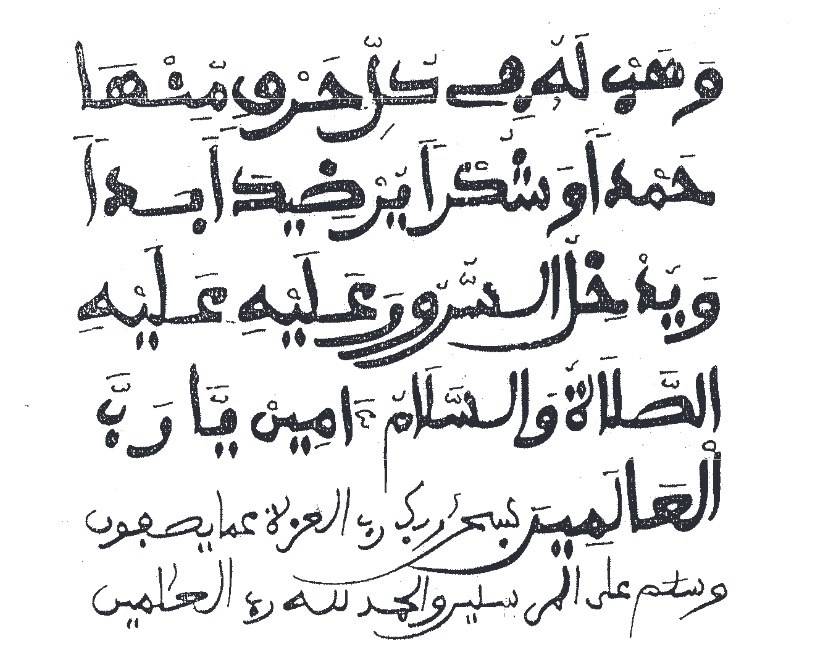 وَهَبْ لَهُ فِي كُلِّ حَرْفٍ مِّنْهَا
حَمْدًا وَشُكْرًا يُرْضِيكَ أَبَدًا
وَيُدْخِلُ السُّرُورَ عَلَيْهِ عَلَيْهِ
الصَّلَاةُ وَالسَّلَامُ ءَامِينْ يَا رَبَّ
الْعَالَمِينَ سبحن ربك رب العزة عما يصفون
وسلم على المرسلين والحمد لله رب العلمين